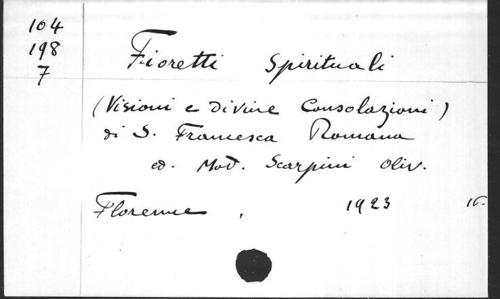 104
198
7
Fioretti Spirituali
(Visioni e Divine Consolazioni)
di S. Francesca Romana
ed. Mod. Scarpini Oliv.
Florence, 1923 16.